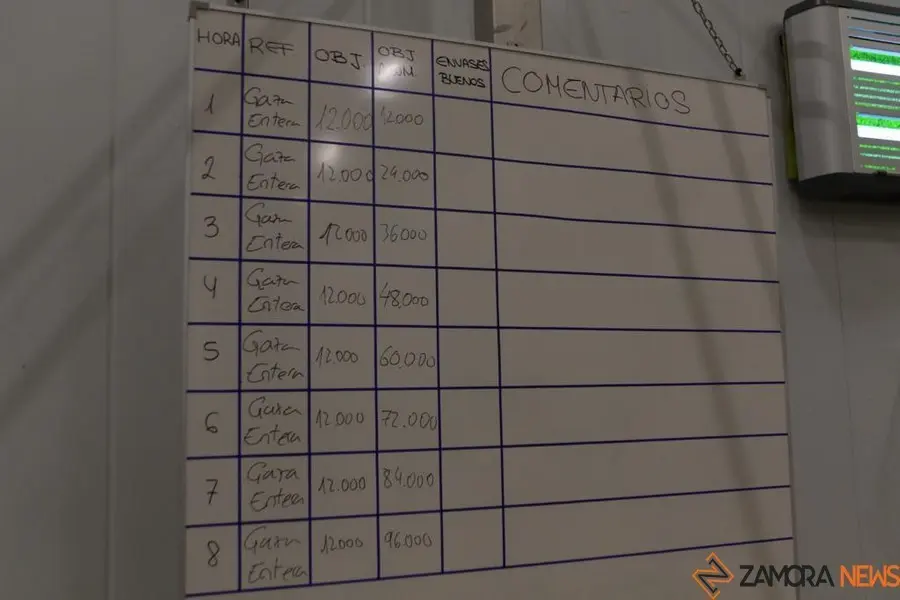 HORA REF OBJ OBJ ENVASES BUENOS COMENTARIOS
1 Gaza Entera 12.000 12.000
2 Gaza Entera 12.000 24.000
3 Gaza Entera 12.000 36.000
4 Gaza Entera 12.000 48.000
5 Gaza Entera 12.000 60.000
6 Gaza Entera 12.000 72.000
7 Gaza Entera 12.000 84.000
8 Gaza Entera 12.000 96.000
ZAMORA NEWS